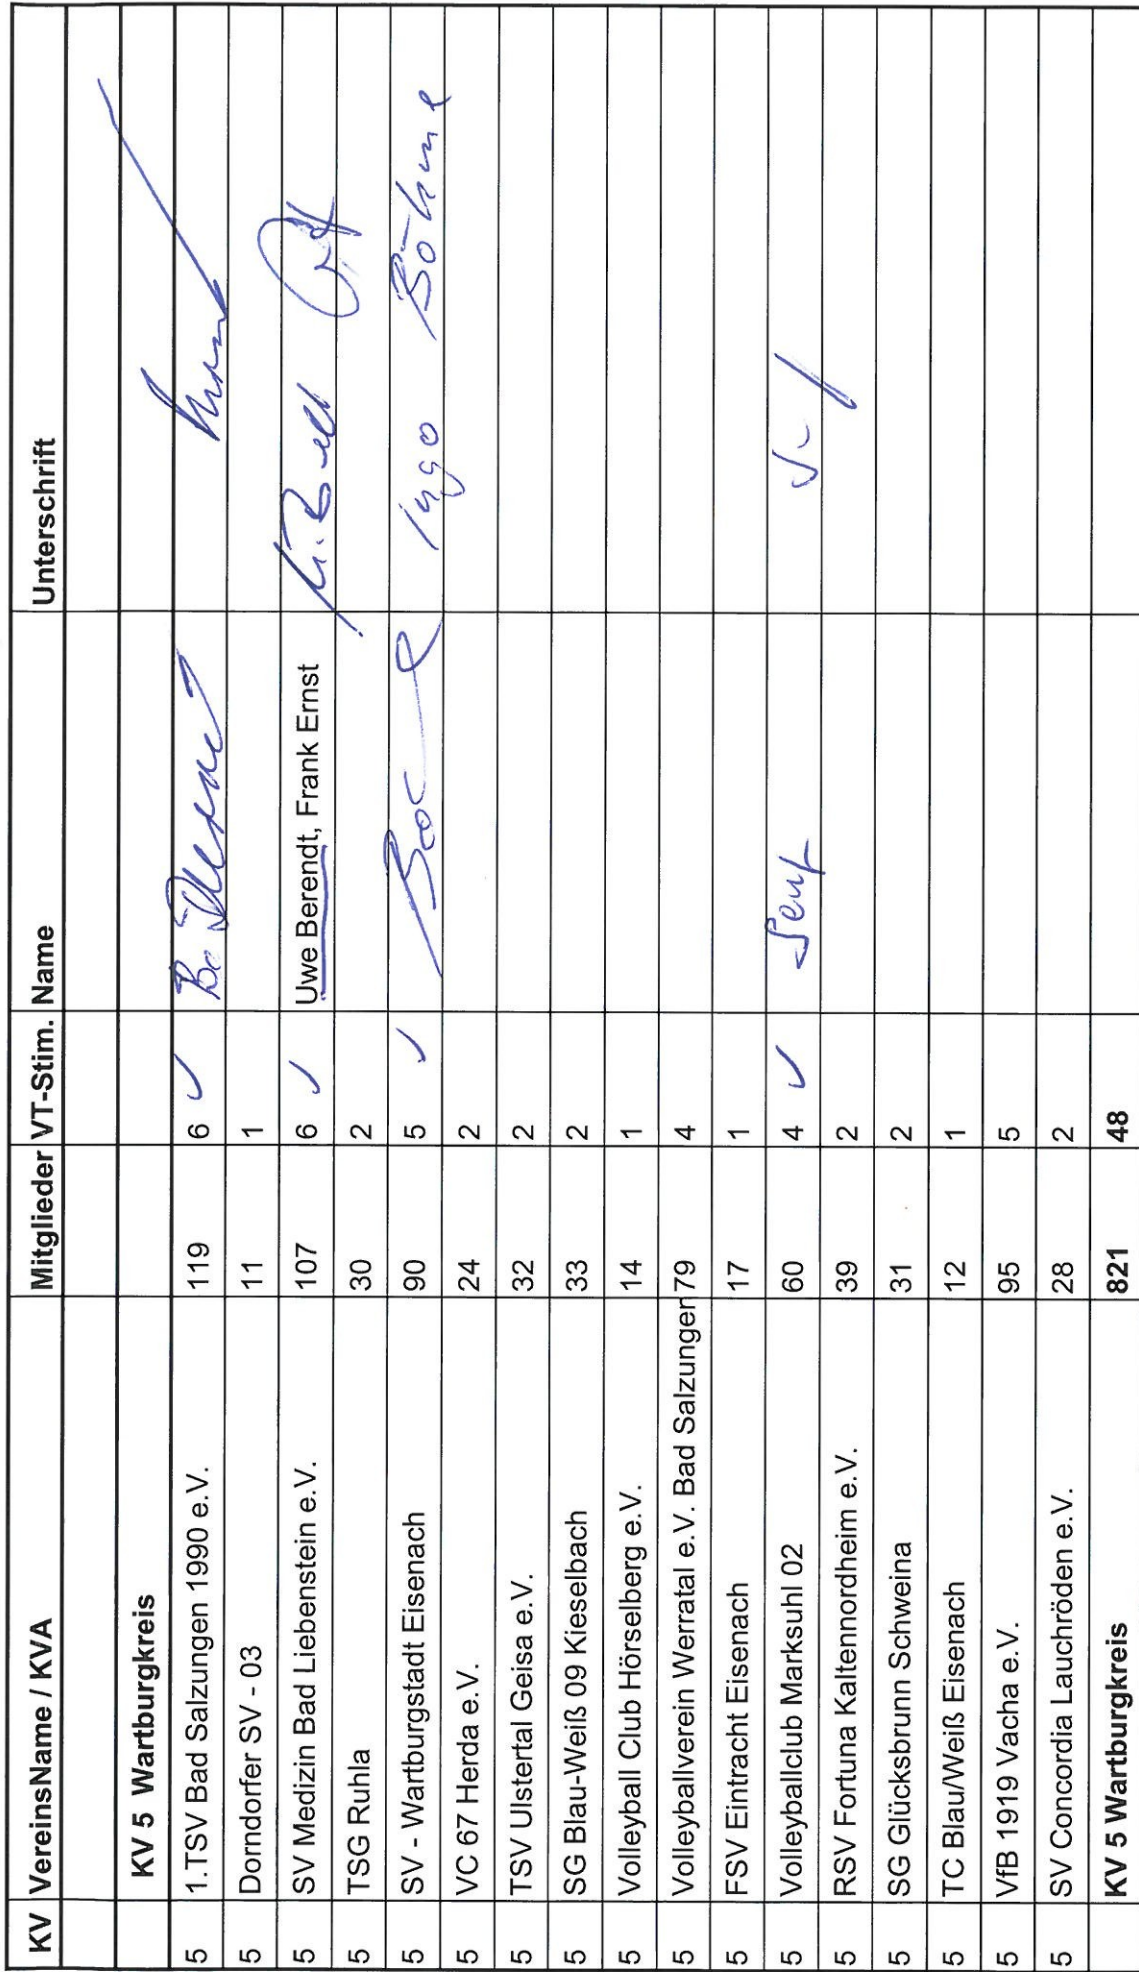 KV VereinsName / KVA Mitglieder VT-Stim. Name Unterschrift
KV 5 Wartburgkreis
5 1.TSV Bad Salzungen 1990 e.V. 119 6 ✓
5 Dorndorfer SV - 03 11 1
5 SV Medizin Bad Liebenstein e.V. 107 6 ✓ Uwe Berendt, Frank Ernst
5 TSG Ruhla 30 2
5 SV - Wartburgstadt Eisenach 90 5 ✓ Ingo Böhme
5 VC 67 Herda e.V. 24 2
5 TSV Ulstertal Geisa e.V. 32 2
5 SG Blau-Weiß 09 Kieselbach 33 2
5 Volleyball Club Hörselberg e.V. 14 1
5 Volleyballverein Werratal e.V. Bad Salzungen 79 4
5 FSV Eintracht Eisenach 17 1
5 Volleyballclub Marksuhl 02 60 4 ✓ Senf
5 RSV Fortuna Kaltennordheim e.V. 39 2
5 SG Glücksbrunn Schweina 31 2
5 TC Blau/Weiß Eisenach 12 1
5 VfB 1919 Vacha e.V. 95 5
5 SV Concordia Lauchröden e.V. 28 2
KV 5 Wartburgkreis 821 48